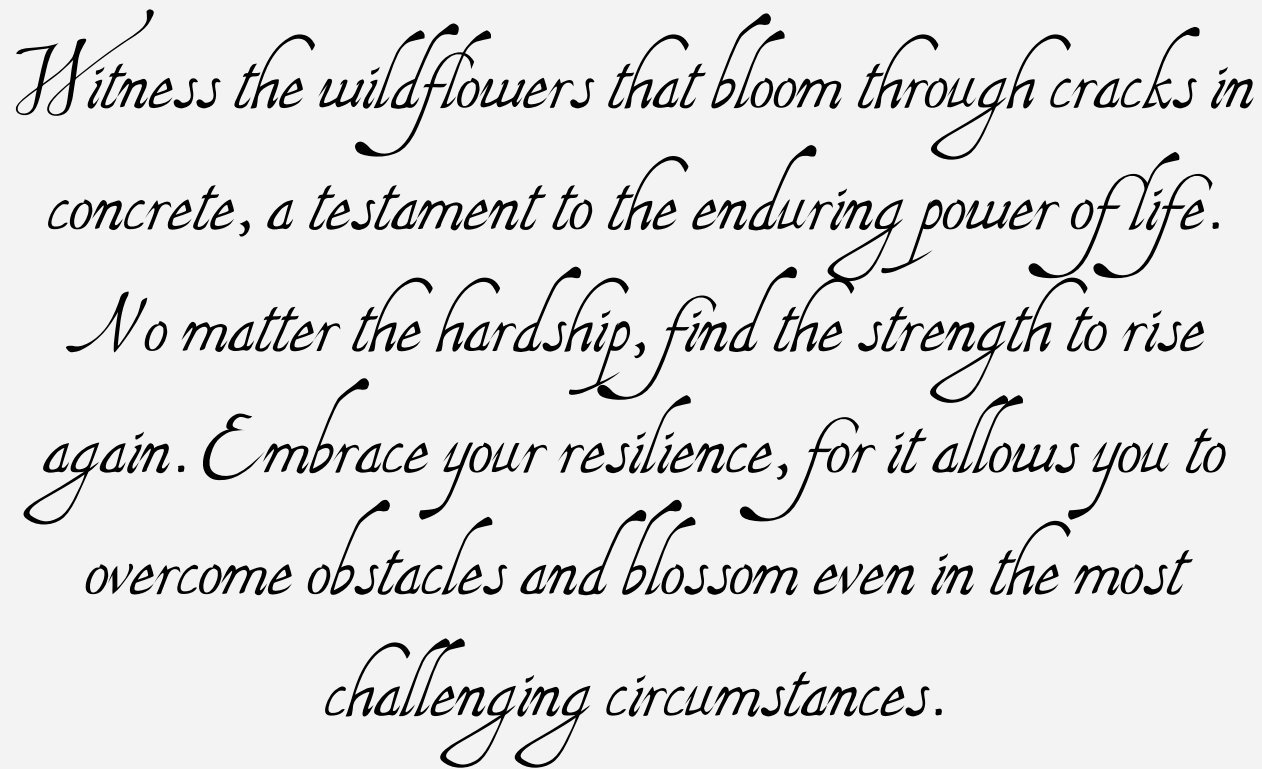 Witness the wildflowers that bloom through cracks in
concrete, a testament to the enduring power of life.
No matter the hardship, find the strength to rise
again. Embrace your resilience, for it allows you to
overcome obstacles and blossom even in the most
challenging circumstances.